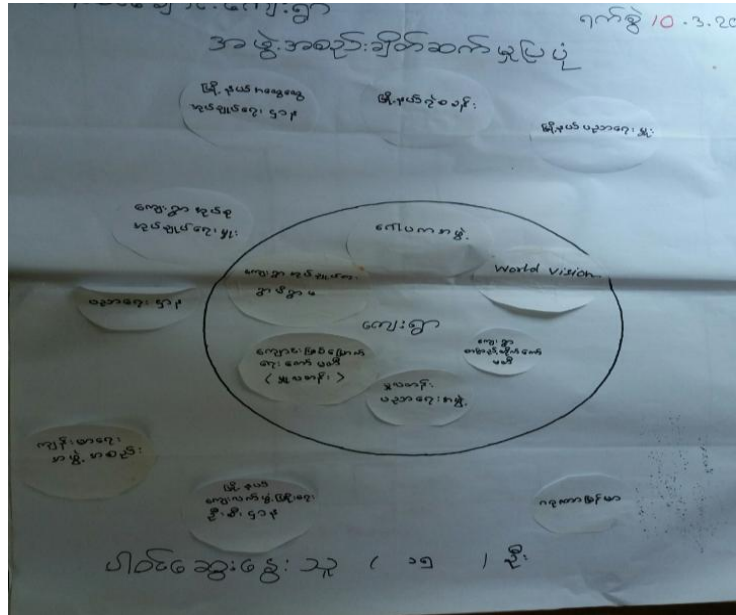 ကျေးရွာ
ရက်စွဲ 10.3.20
အဖွဲ့အစည်းချိတ်ဆက်မှုပြပုံ
မြို့နယ်အထွေထွေ
အုပ်ချုပ်ရေးဌာန
မြို့နယ်
မြို့နယ်ပညာရေးမှူး
ကျေးရွာအုပ်စု
အုပ်ချုပ်ရေးမှူး
ဂေါပကအဖွဲ့
World Vision
ကျေးရွာအုပ်ချုပ်ရေး
ပညာရေးဌာန
ကျေးရွာ
ကျောင်း
ရေးကော်မတီ
(မူလတန်း)
ကျေးရွာ
ကော်
မတီ
မူလတန်း
ပညာရေးအဖွဲ့
ကျန်းမာရေး
အဖွဲ့အစည်း
မြို့နယ်
ကျေးလက်ဖွံ့ဖြိုးရေး
ဦးစီးဌာန
ဂရုဏာမြန်မာ
ပါဝင်ဆွေးနွေးသူ ( ၁၅ ) ဦး